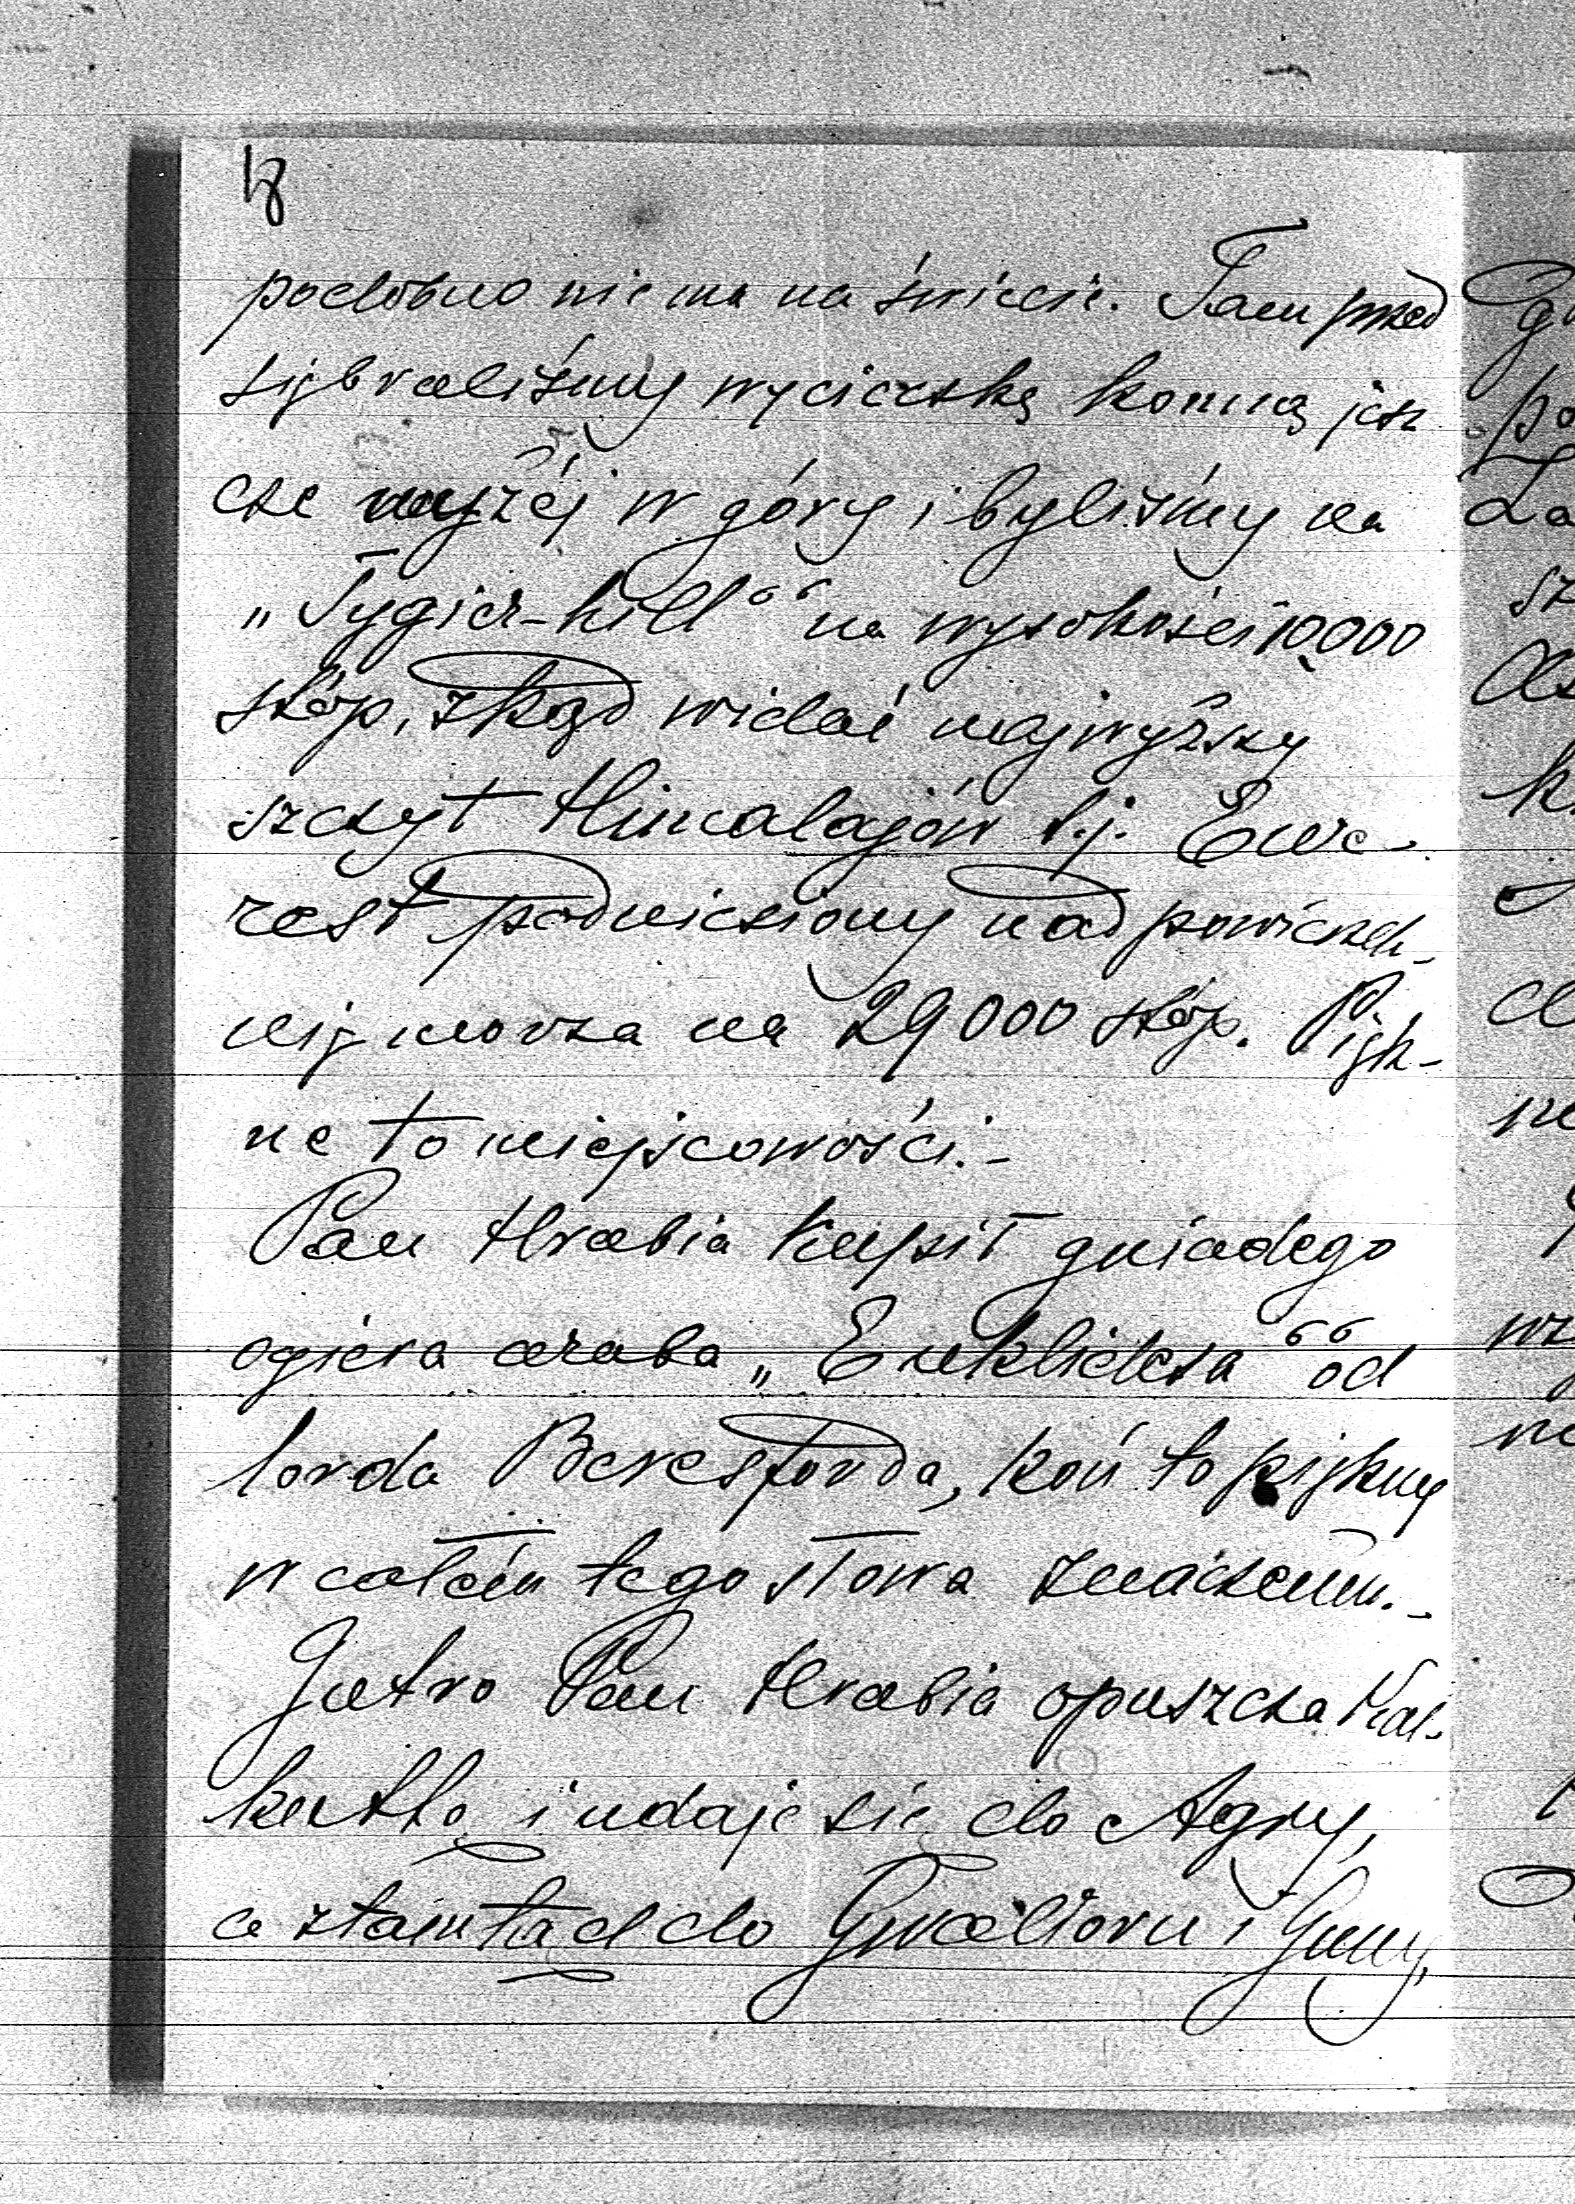 18
podobno nie ma na świecie. Tam przed
siębraliśmy wycieczkę konną jesz
cze wyżéj w góry i byliśmy na
„Tygier-hill“ na wysokości 10000
stóp, zkąd widać najwyższy
szczyt Himalajów t.j. Ewe-
rest podniesiony nad powierzch-
nię morza na 29000 stóp. Pięk-
ne to miejscowości.-
Pan Hrabia kupił gniadego
ogiera araba „Euklidesa“ od
lorda Beresforda, koń to piękny
w całém tego słowa znaczeniu.-
Jutro Pan Hrabia opuszcza Kal-
kuttę i udaje się do Agry,
a ztamtąd do Gwalioru i Guny,